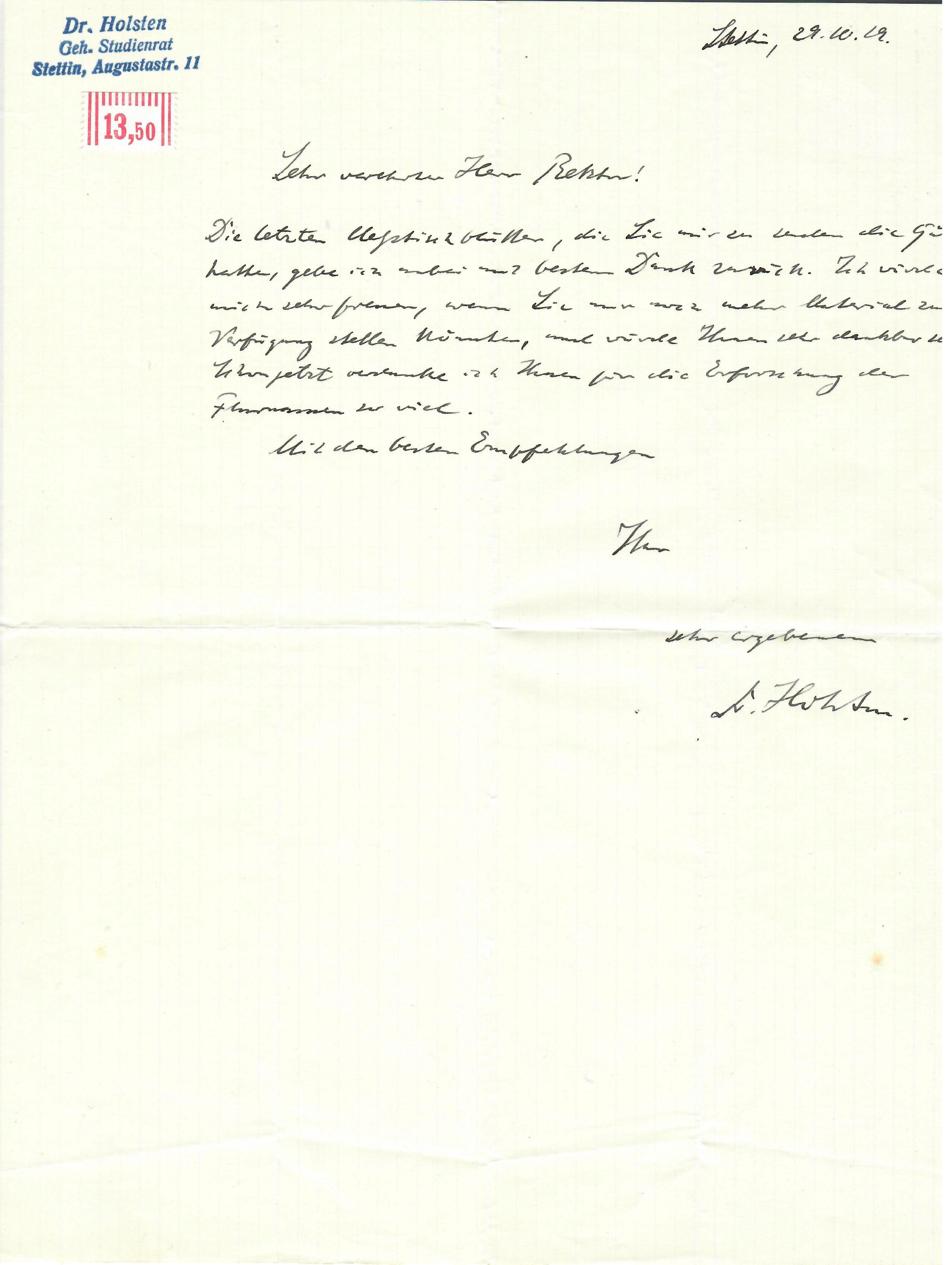 Dr. Holsten
Geh. Studienrat
Stettin, Augustastr. 11
Stettin, 29.10.19.
13,50
Sehr verehrter Herr Rektor!
Die letzten Meßtischblätter, die Sie mir zu senden die Gü
hatten, gebe ich anbei mit bestem Dank zurück. Ich würde
mich sehr freuen, wenn Sie mir noch mehr Material zu
Verfügung stellen könnten, und würde Ihnen sehr dankbar se
Schon jetzt verdanke ich Ihnen für die Erforschung der
Flurnamen so viel.
Mit den besten Empfehlungen
Ihr
sehr ergebener
Dr. Holsten.